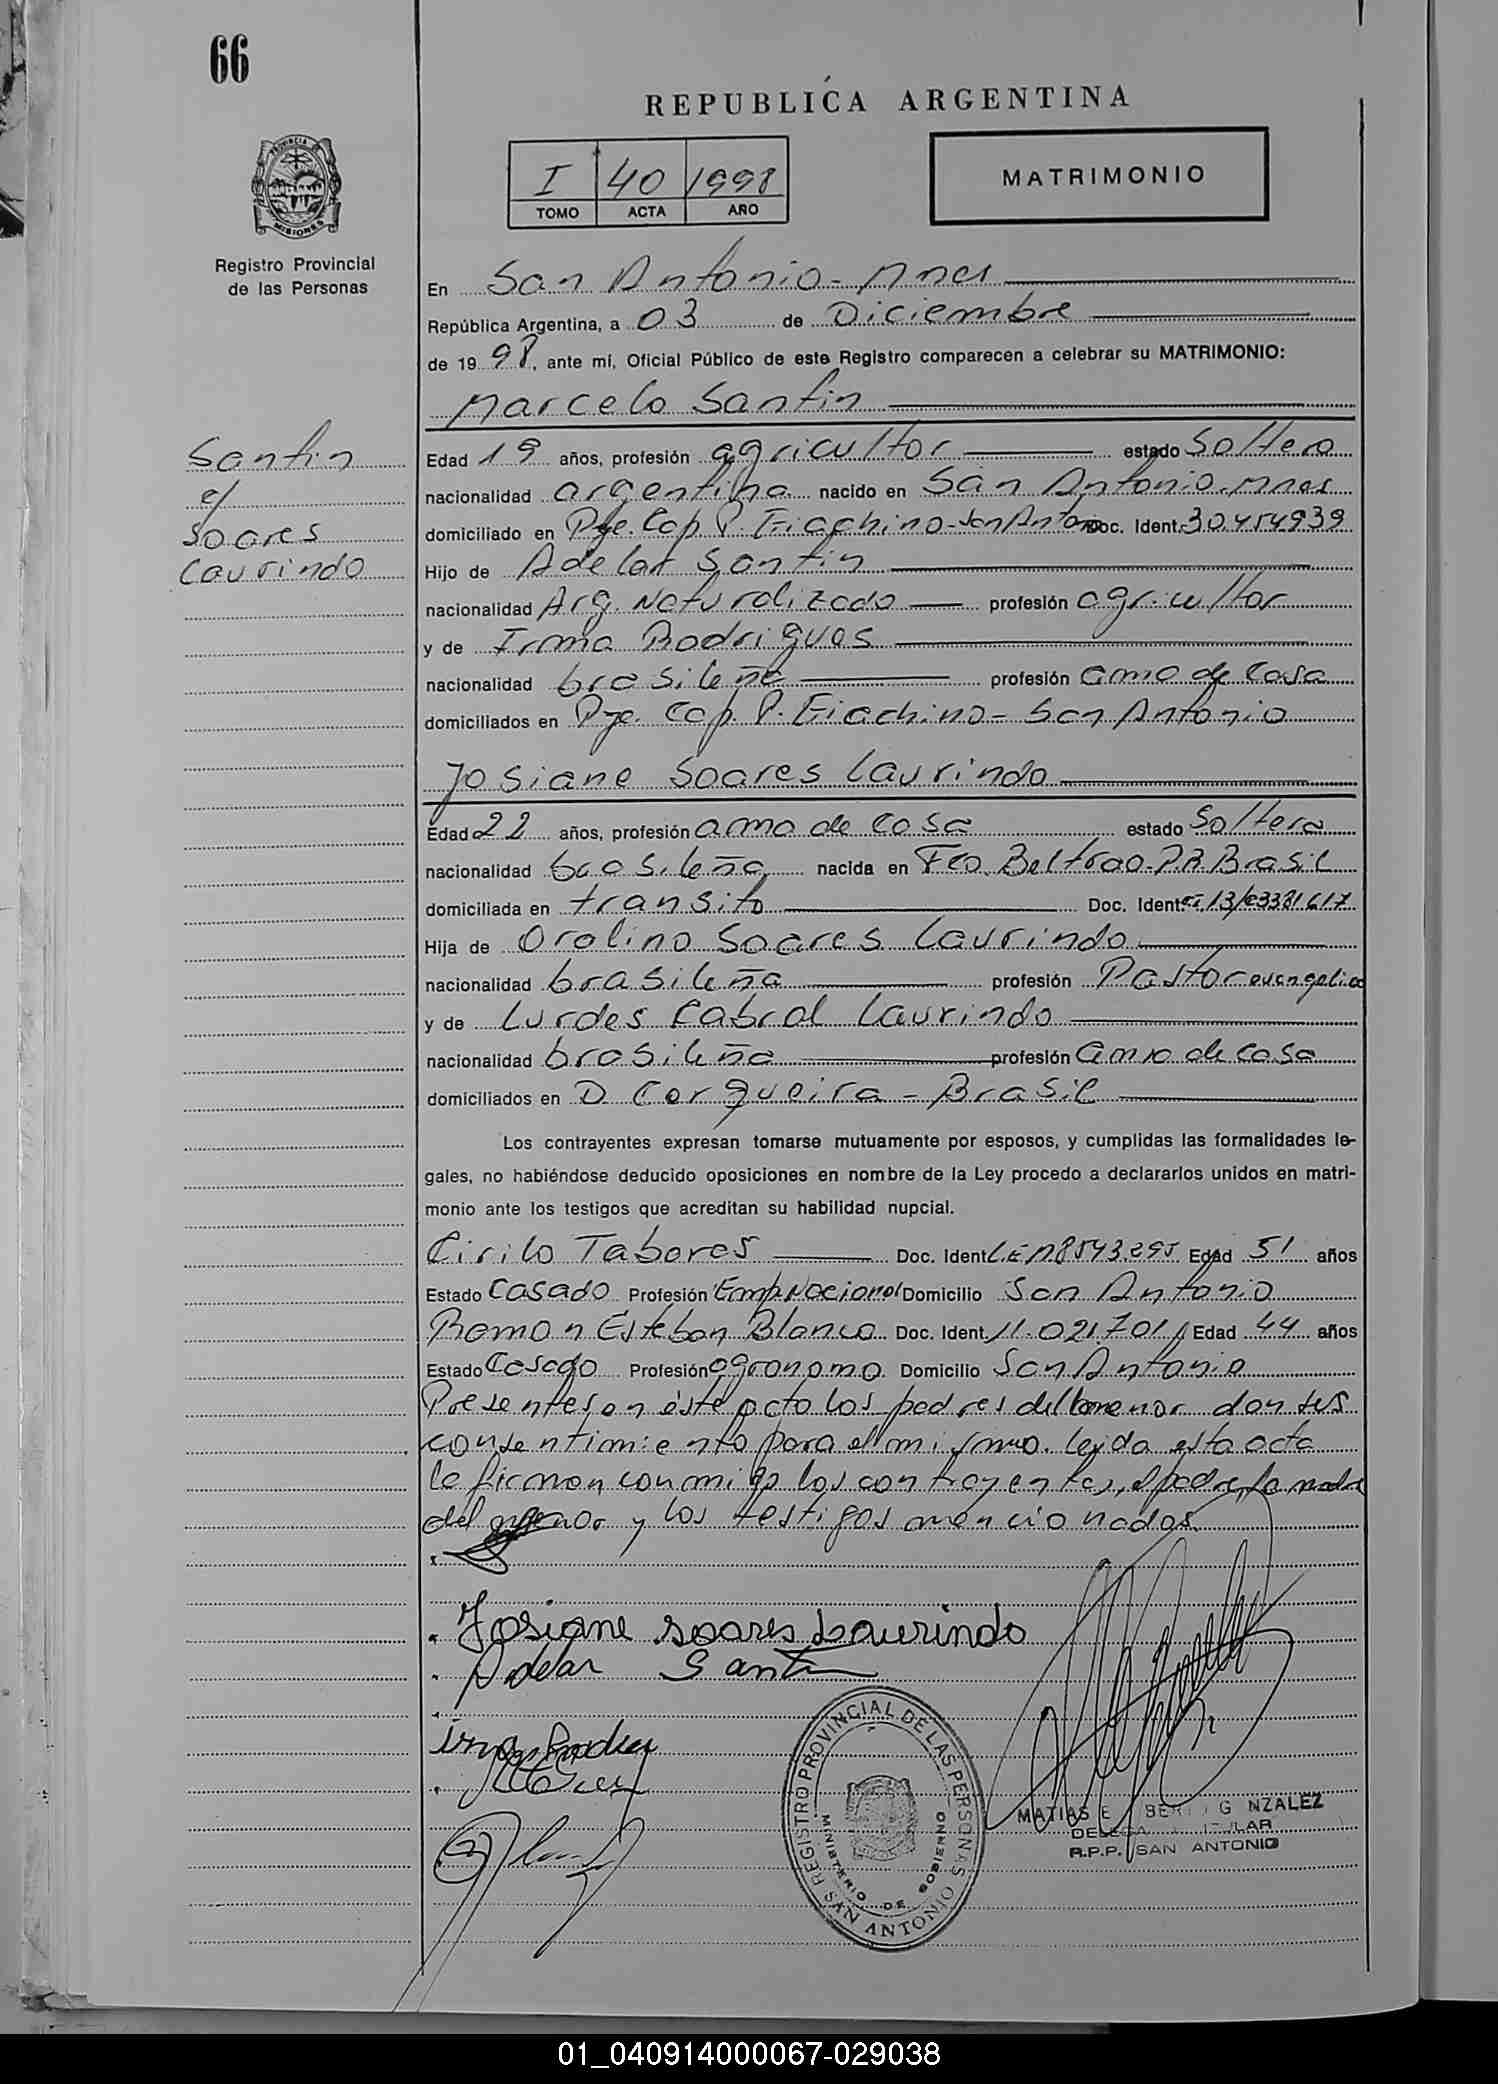 66
REPUBLICA ARGENTINA
I 40 1998
TOMO ACTA AÑO
MATRIMONIO
PROVINCIA DE
MISIONES
Registro Provincial
de las Personas
En San Antonio - Mnes
República Argentina, a 03 de Diciembre
de 1998, ante mí, Oficial Público de este Registro comparecen a celebrar su MATRIMONIO:
Marcelo Santin
Santin
c/
Soares
Laurindo
Edad 19 años, profesión agricultor estado Soltero
nacionalidad argentina nacido en San Antonio - Mnes
domiciliado en Pje. Cap. P. Giachino - San Antonio Doc. Ident. 30.454939
Hijo de Adelar Santin
nacionalidad Arg. Naturalizado profesión agricultor
y de Irma Rodrigues
nacionalidad brasileña profesión ama de casa
domiciliados en Pje. Cap. P. Giachino - San Antonio
Josiane Soares Laurindo
Edad 22 años, profesión ama de casa estado Soltera
nacionalidad brasileña nacida en Fco. Beltrao - P.R. Brasil
domiciliada en transito Doc. Ident. 13/
Hija de Oralino Soares Laurindo
nacionalidad brasileña profesión Pastor evangelico
y de Lurdes Cabral Laurindo
nacionalidad brasileña profesión ama de casa
domiciliados en D. Cerqueira - Brasil
Los contrayentes expresan tomarse mutuamente por esposos, y cumplidas las formalidades le-
gales, no habiéndose deducido oposiciones en nombre de la Ley procedo a declararlos unidos en matri-
monio ante los testigos que acreditan su habilidad nupcial.
Cirilo Tabares Doc. Ident. L.E. Nº 8543.295 Edad 51 años
Estado Casado Profesión Emp. Nacional Domicilio San Antonio
Ramon Esteban Blanco Doc. Ident. 11.021.701 Edad 44 años
Estado Casado Profesión agronomo Domicilio San Antonio
Presentes en éste acto los padres del menor dan sus
consentimiento para el mismo. leida esta acta
la firman conmigo los contrayentes, el padre, la madre
del menor y los testigos mencionados
Josiane Soares Laurindo
Adelar Santin
REGISTRO PROVINCIAL DE LAS PERSONAS
MINISTERIO DE GOBIERNO
SAN ANTONIO
MATIAS E BERT G NZALEZ
R.P.P. SAN ANTONIO
01_040914000067-029038